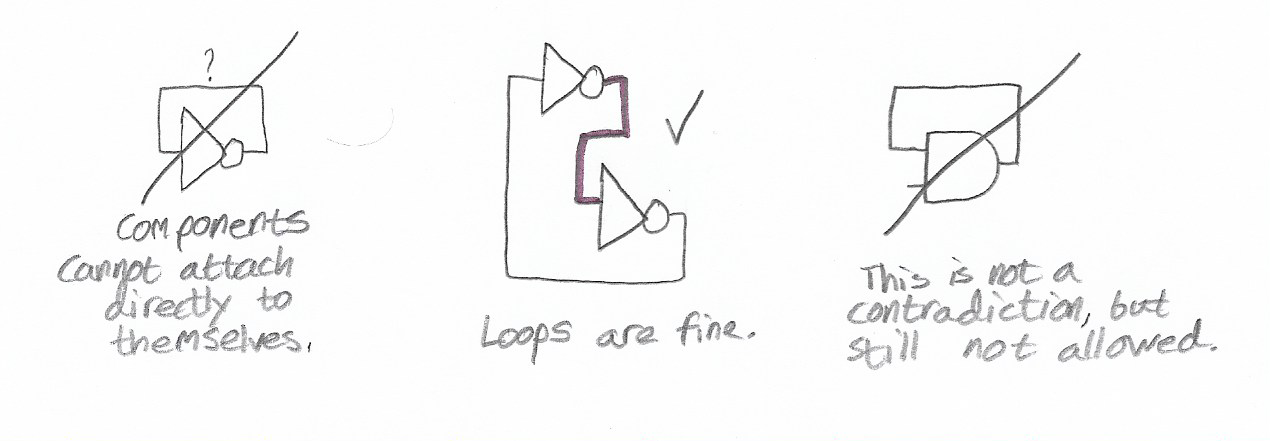 ?
Components
cannot attach
directly to
themselves.
Loops are fine.
This is not a
contradiction, but
still not allowed.